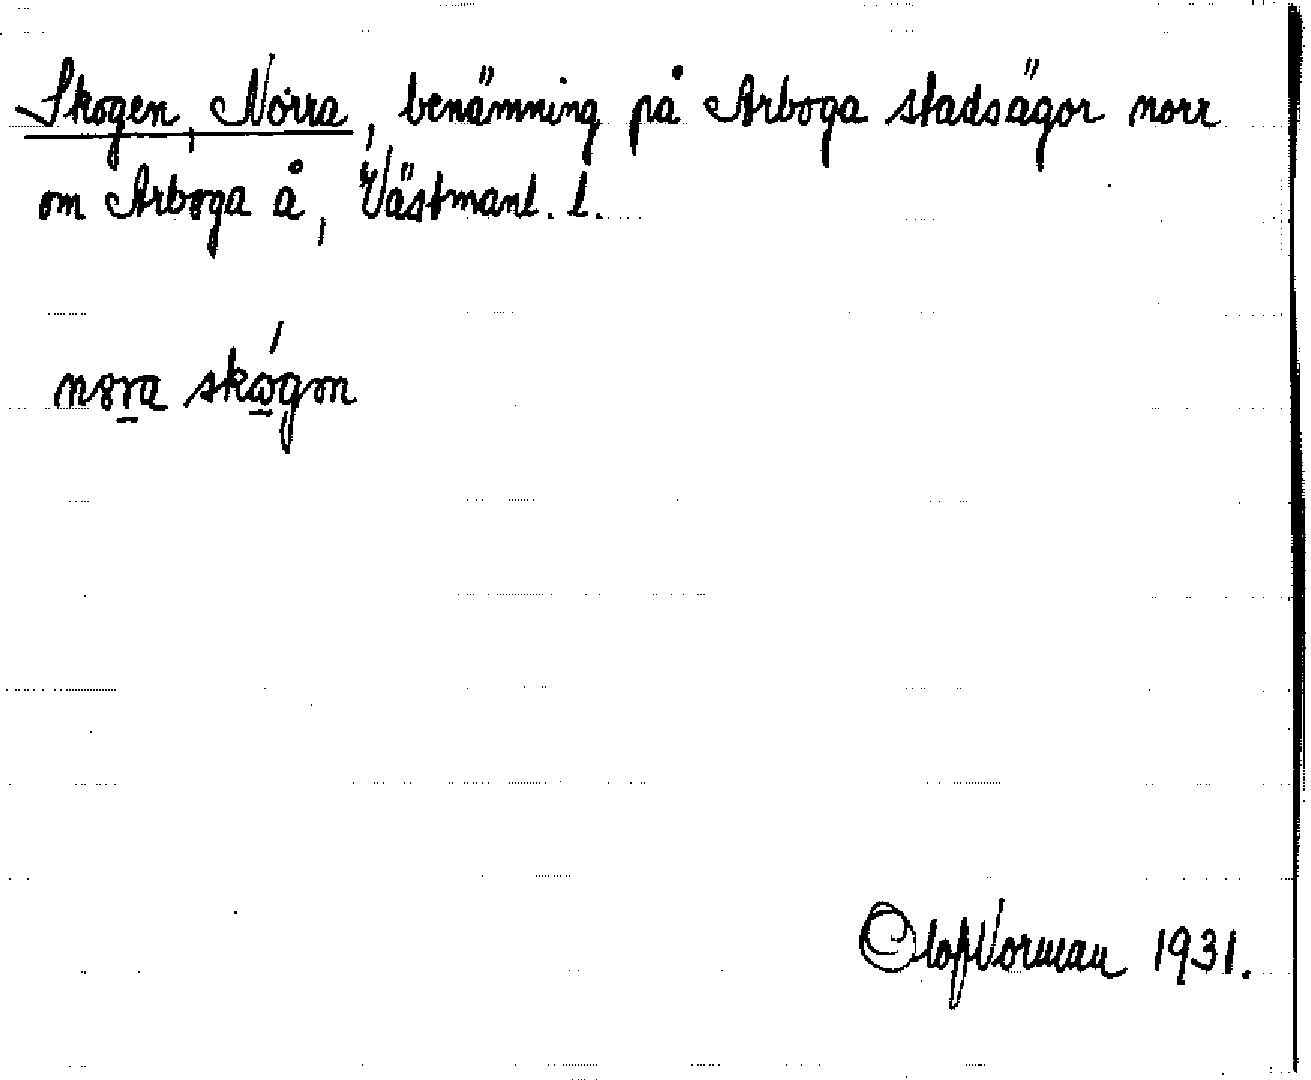 Skogen, Norra, benämning på Arboga stadsägor norr
om Arboga å, Västmanl. l.
nora skógon
Olof Norman 1931.